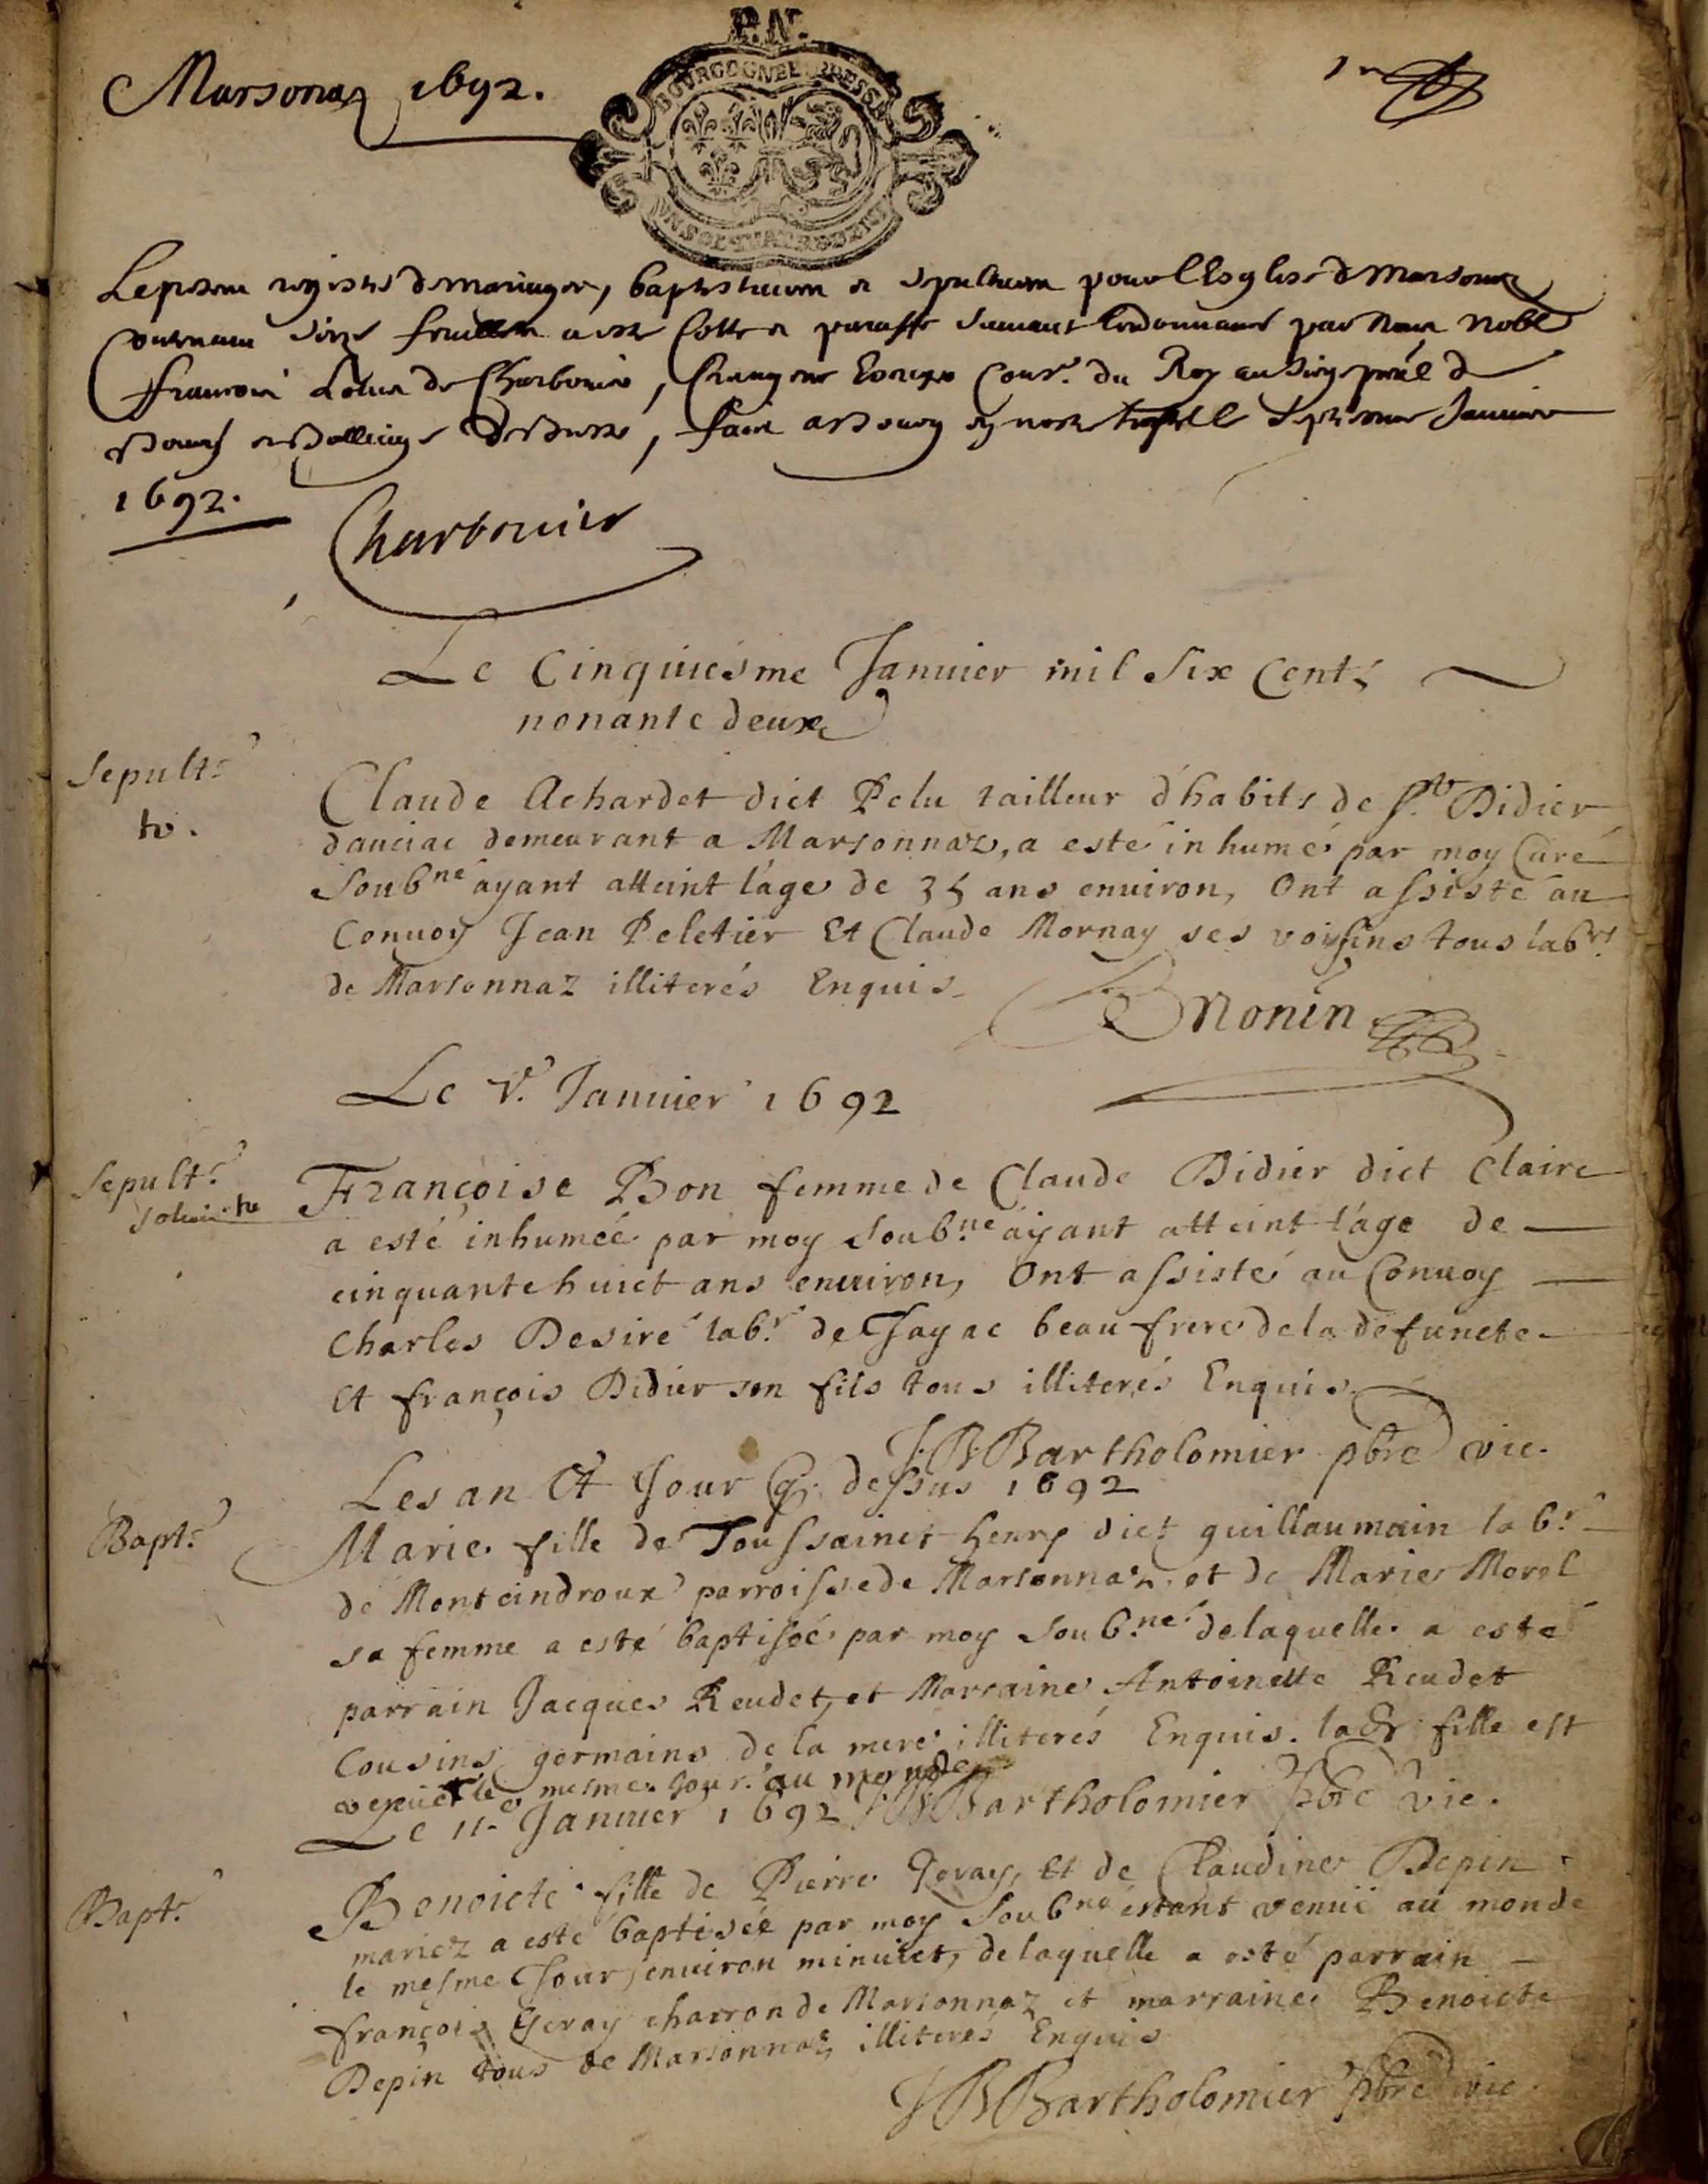 P.N.
Marsonaz 1692.
BOURGOGNE BRESSE
UN SOL QUATRE DE
Le present registre de mariages, baptistaires et sepultures pour l'Esglise de Marsonaz
Contenant seize feuillets a este Cotte et paraffe suivant lordonnance par Nous Noble
François Louis de Charbonier, Conr. du Roy au siege pnal de
1692.
Charbonier
Le Cinquiésme Januier mil Six Cents
nonante deux
Sepultr
Claude Achardet dict Pelu tailleur d'habits de St Didier
dauciac demeurant a Marsonnaz, a esté inhumé par moy Curé
Soubné ayant atteint l'age de 35 ans enuiron, Ont assisté au
Conuoy Jean Peletier Et Claude Mornay ses voisins tous labrs
de Marsonnaz illiterés Enquis
Nonin
Le Ve. Januier 1692
Sepultr
Françoise Bon femme de Claude Didier dict Claire
a esté inhumée par moy Soubné ayant atteint l'age de
cinquante huict ans enuiron, Ont assisté au Conuoy
Charles Desiré labr de Jayac beau frere de la defuncte
Et françois Didier son fils tous illiterés Enquis
J. B. Bartholomier pbre vic.
Les an Et Jour q. dessus 1692
Bapt.
Marie fille de Toussainct henry dict guillaumain labr
de Monteindroux parroisse de Marsonnaz, et de Marie Morel
sa femme a esté baptisée par moy Soubné de laquelle a esté
parrain Jacques Reudet, et Marraine Antoinette Reudet
Cousins germains de la mere illiterés Enquis. lad. fille est
venüe le mesme Jour au monde
J. B. Bartholomier pbre vic.
Le 11e Januier 1692
Bapt.
Benoicte fille de Pierre Geray, Et de Claudine Depin
mariez a esté baptisée par moy Soubné estant venüe au monde
le mesme Jour, enuiron minuict, de laquelle a esté parrain
françois Geray charron de Marsonnaz et marraine Benoicte
Depin tous de Marsonnaz illiterés Enquis
J B Bartholomier pbre vic.